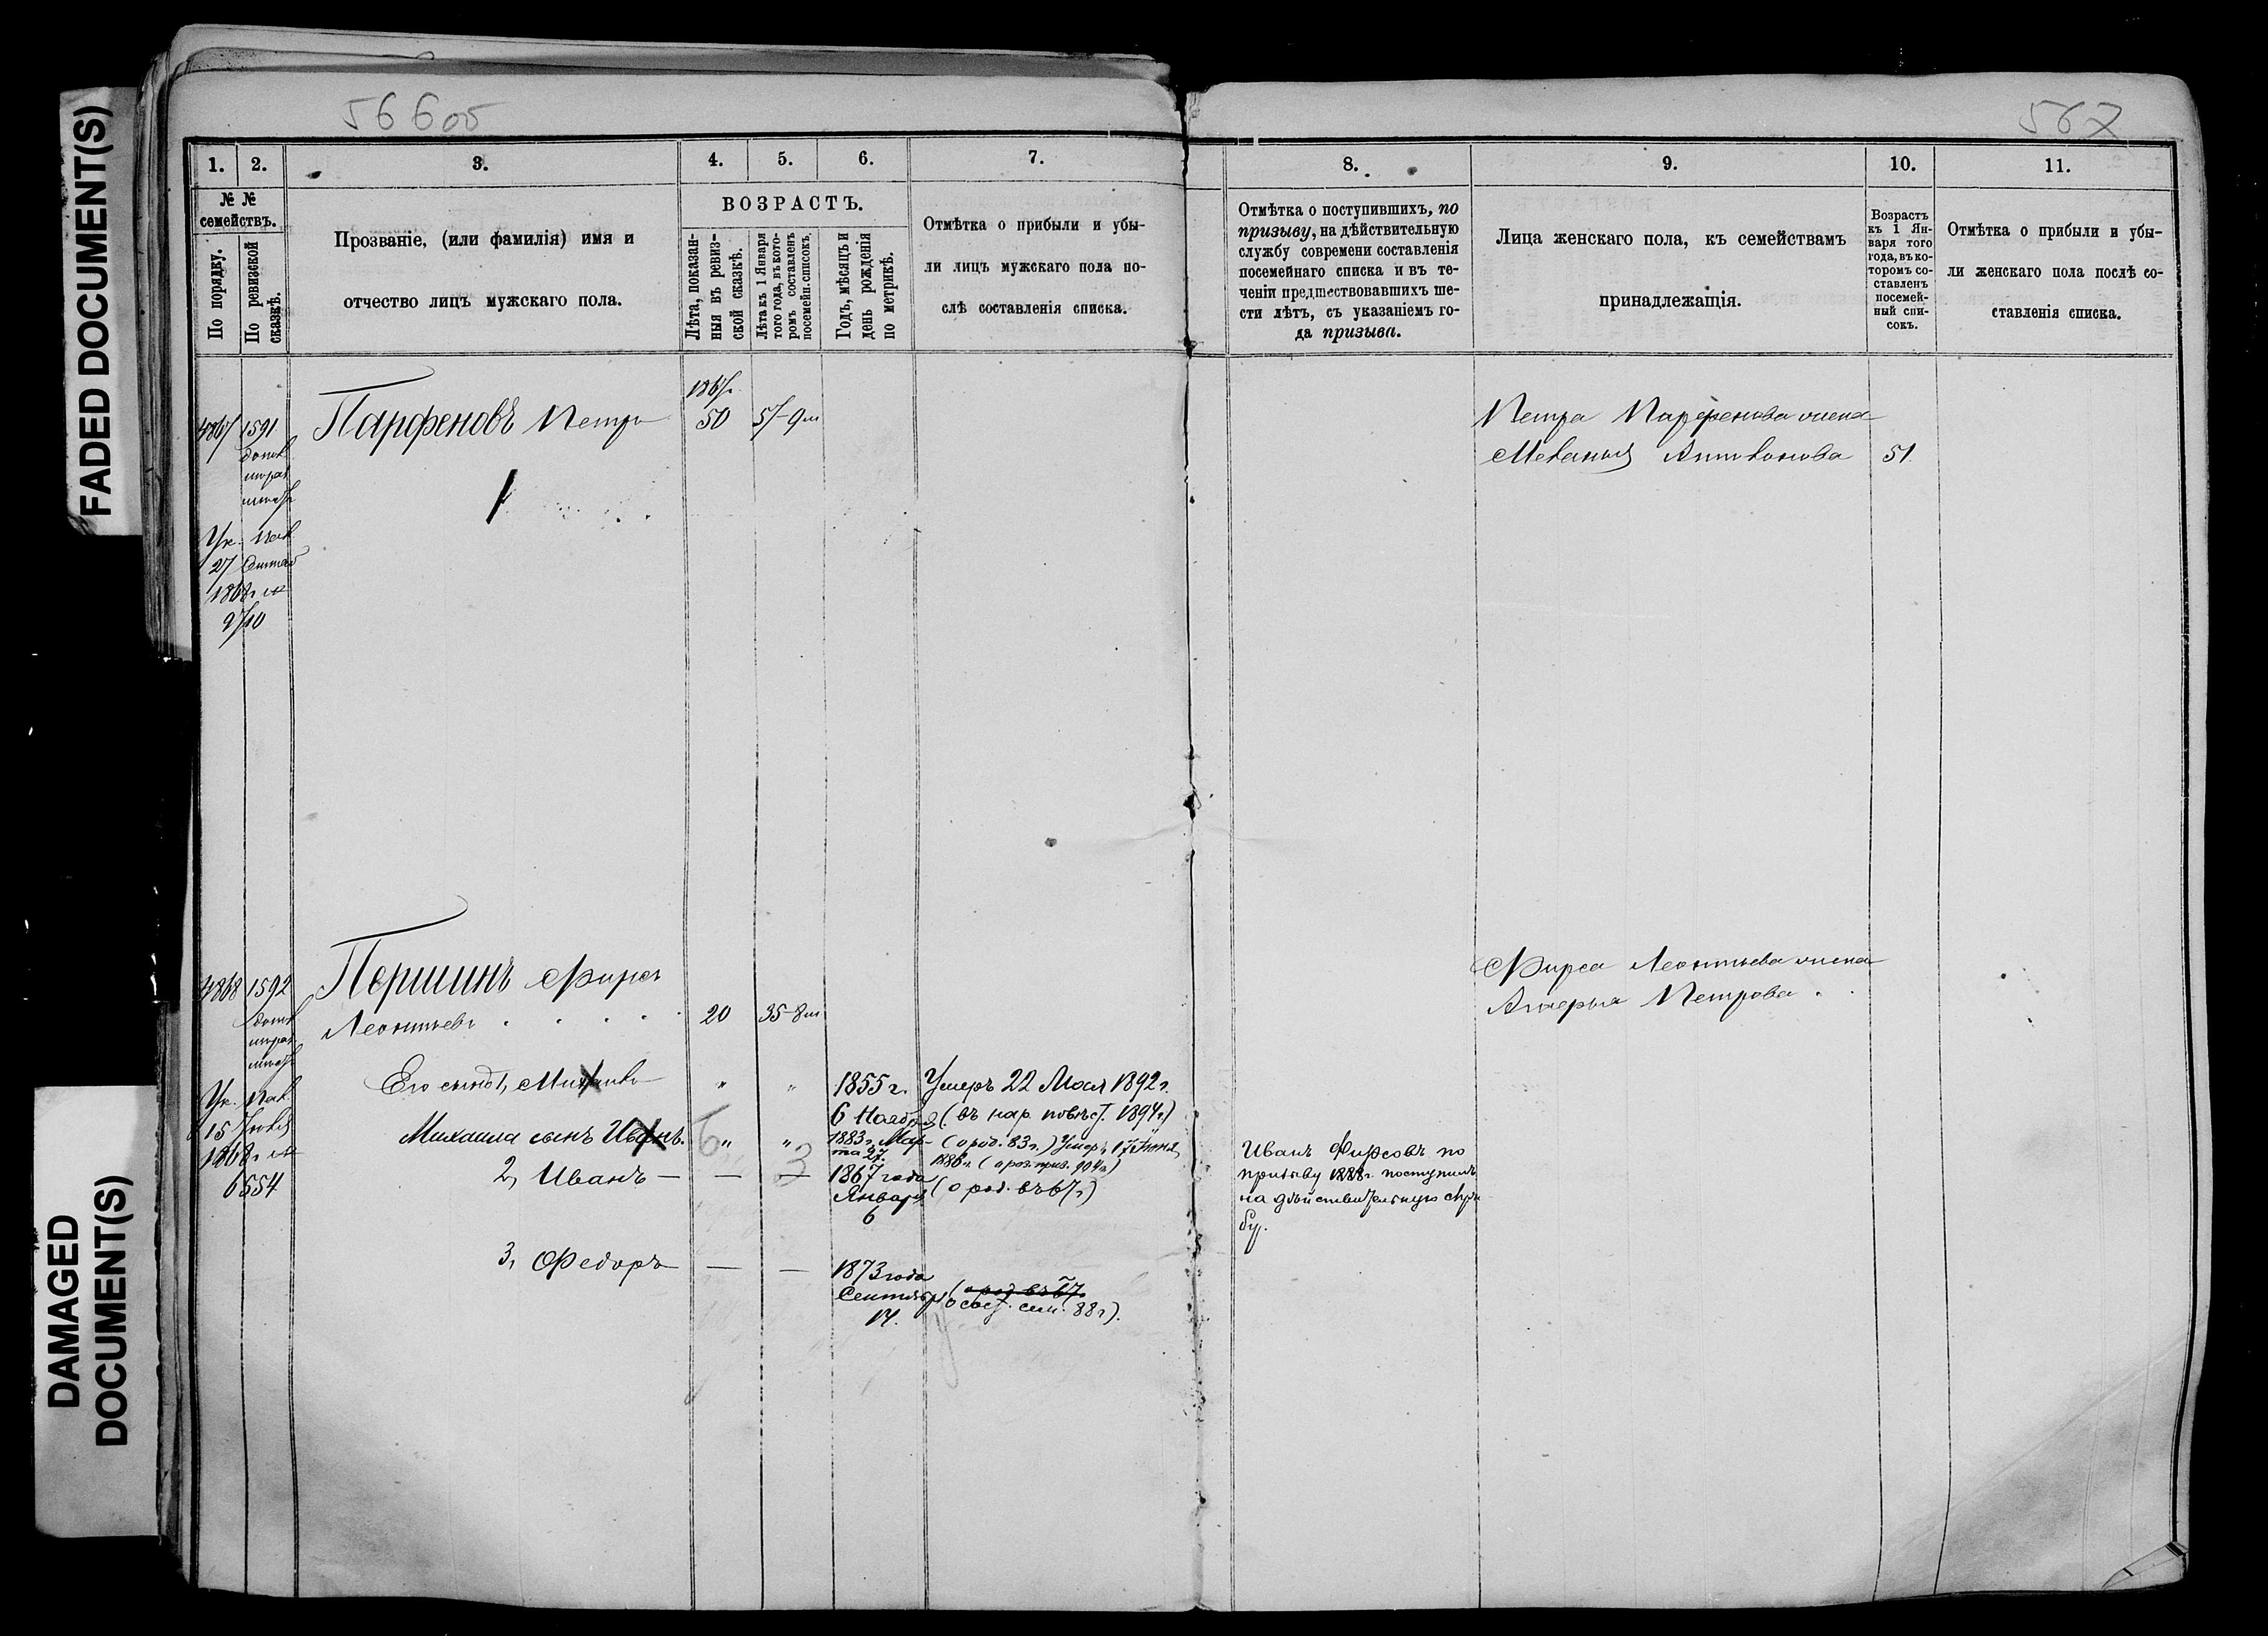 FADED DOCUMENT(S)
DAMAGED
DOCUMENT(S)
566об
567
1.
2.
3.
4.
5.
6.
7.
8.
9.
10.
11.
№ №
семействъ.
По порядку.
По ревизской
сказкѣ.
Прозваніе, (или фамилія) имя и
отчество лицъ мужскаго пола.
ВОЗРАСТЪ.
Лѣта, показан-
ныя въ ревиз-
ской сказкѣ.
Лѣта къ 1 Января
того года, въ кото-
ромъ составленъ
посемейн. списокъ.
Годъ, мѣсяцъ и
день рожденія
по метрикѣ.
Отмѣтка о прибыли и убы-
ли лицъ мужскаго пола по-
слѣ составленія списка.
Отмѣтка о поступившихъ, по
призыву, на дѣйствительную
службу современи составленія
посемейнаго списка и въ те-
ченіи предшествовавшихъ ше-
сти лѣтъ, съ указаніемъ го-
да призыва.
Лица женскаго пола, къ семействамъ
принадлежащія.
Возрастъ
къ 1 Ян-
варя того
года, въ ко-
торомъ со-
ставленъ
посемей-
ный спи-
сокъ.
Отмѣтка о прибыли и убы-
ли женскаго пола послѣ со-
ставленія списка.
4867 1591 Парфеновъ Петръ 50 57-9м
27
1868г
Петра Парфенова жена
Меланья Антонова 51
4868 1592 Першинъ Фирсъ
Леонтьевъ 20 35-8м
Фирса Леонтьева жена
Петрова
Его сынъ 1, Михаилъ " " 1855г. Умеръ 22 Мая 1892г.
6 Ноября (въ нар. 1894г)
Михаила сынъ Иванъ. " " 1883г. Мар- (о род. 83г.) Умеръ 17 Іюня
та 27. 1886г.
2, Иванъ — — — 1867 года
Января (о род. въ 67г)
6
Иванъ Фирсовъ по
призыву 1888г. поступилъ
на дѣйствительную служ
бу.
15
1868г
6554
3, Федоръ — — 1873 года
Сентября (о род. въ 67
14. о сост. сем. 88г).